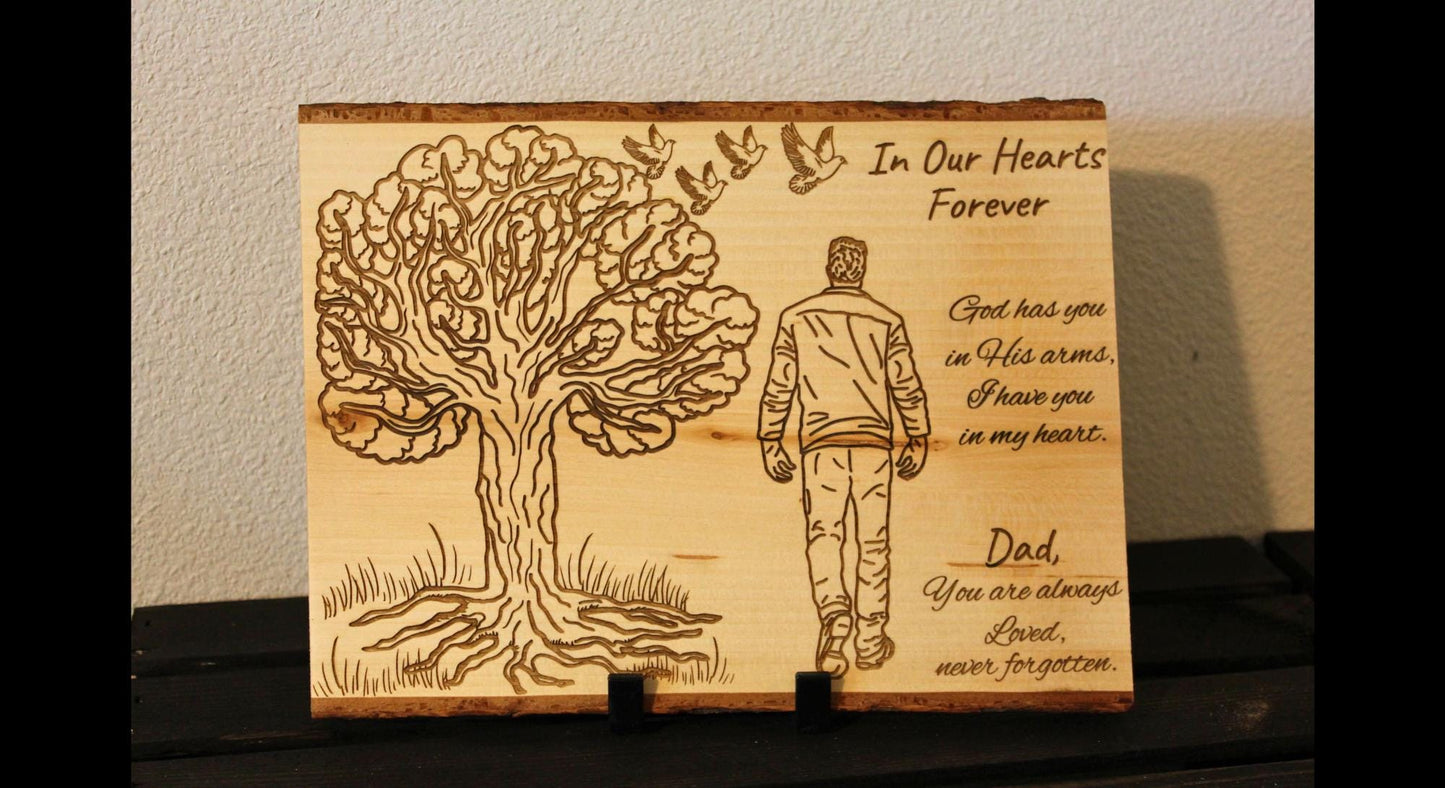 In Our Hearts
Forever
God has you
in His arms,
I have you
in my heart.
Dad,
You are always
Loved,
never forgotten.